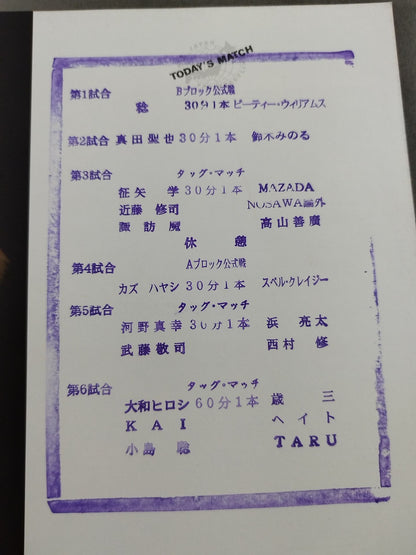 TODAY'S MATCH
第1試合 Bブロック公式戦
稔 30分1本 ピーティー・ウィリアムス
第2試合 真田聖也 30分1本 鈴木みのる
第3試合 タッグ・マッチ
征矢 学 30分1本 MAZADA
近藤 修司 NOSAWA論外
諏訪魔 高山善廣
休憩
第4試合 Aブロック公式戦
カズ ハヤシ 30分1本 スペル・クレイジー
第5試合 タッグ・マッチ
河野真幸 30分1本 浜 亮太
武藤敬司 西村 修
第6試合 タッグ・マッチ
大和ヒロシ 60分1本 歳三
KAI ヘイト
小島 聡 TARU